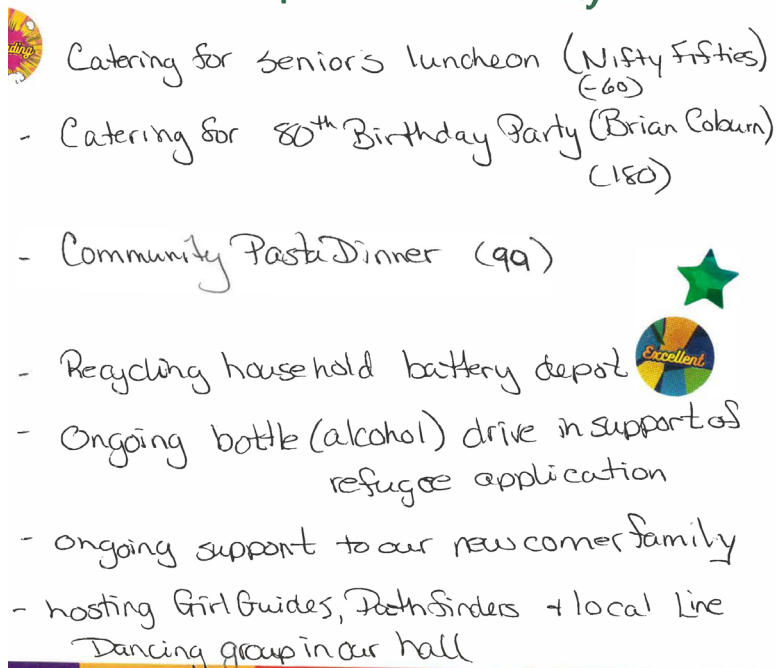 Catering for senior's luncheon (Nifty Fifties)
(-60)
- Catering for 80th Birthday Party (Brian Coburn)
(180)
- Community Pasta Dinner (99)
- Recycling household battery depot
Excellent
- Ongoing bottle (alcohol) drive in support of
refugee application
- ongoing support to our newcomer family
- hosting Girl Guides, Pathfinders + local Line
Dancing group in our hall